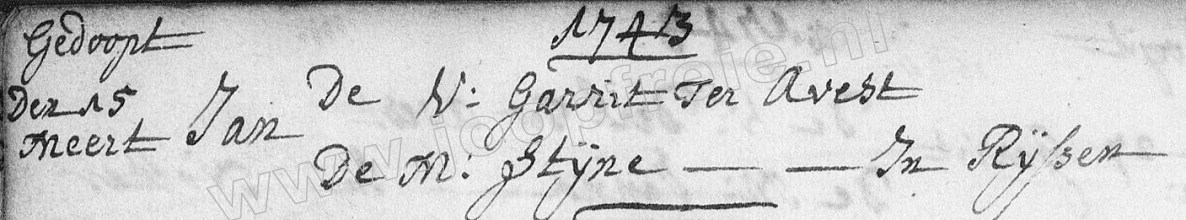 1743
Gedoopt
Den 15 Meert Jan
De V: Garrit Ter Avest
De M: Stijne — — In Rijssen
www.joopfreie.nl